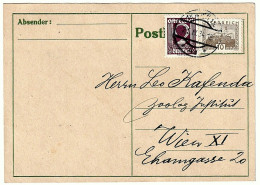 Absender:
Post
ÖSTERREICH
Herrn Leo Kafenda
Zoolog. Institut
Wien XI
Ehamgasse 20